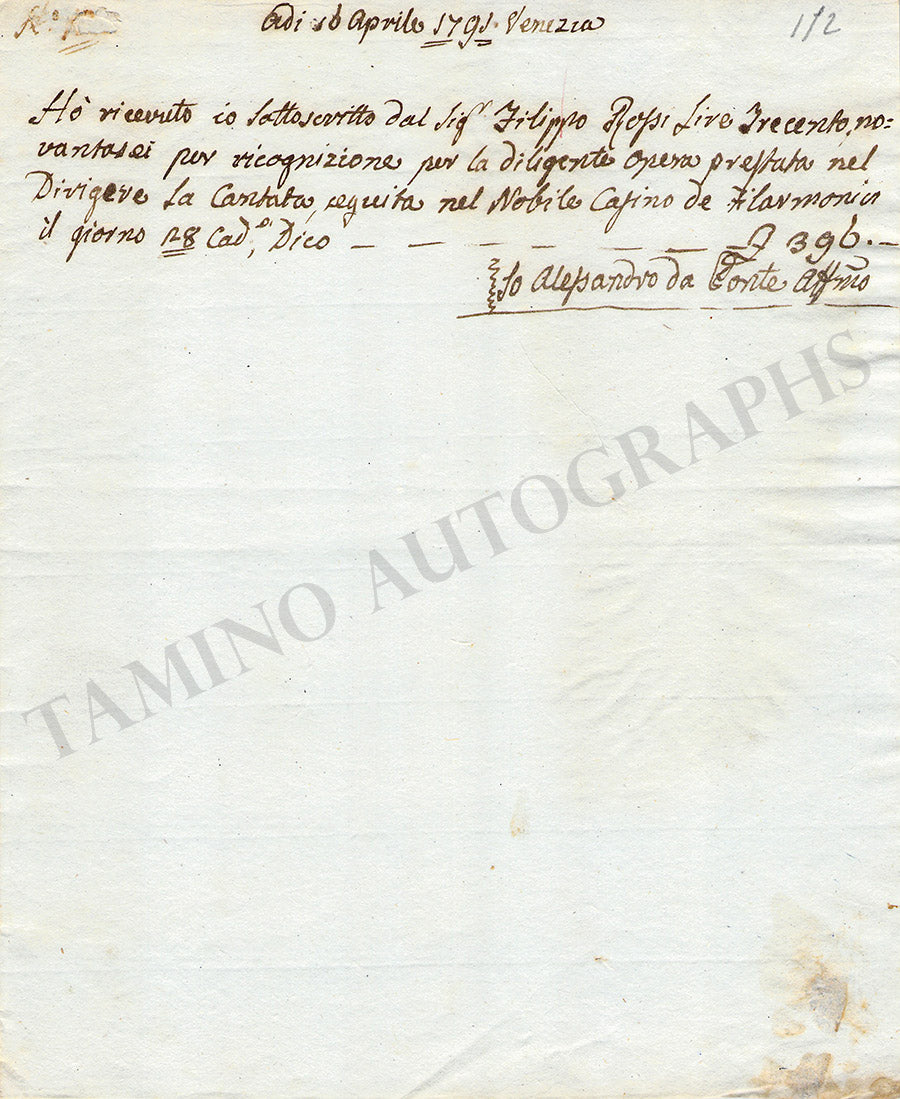 Adi 16 Aprile 1791. Venezia
112
Hò ricevuto io sottoscritto dal Sigr Filippo Rossi Lire Trecento, no-
vantasei per ricognizione per la diligente opera prestata nel
Dirigere La Cantata, seguita nel Nobile Casino de Filarmonici
il giorno 28 Cad.e, Dico — — — — — — £ 396.—
Io Alessandro da Ponte Affmo
TAMINO AUTOGRAPHS